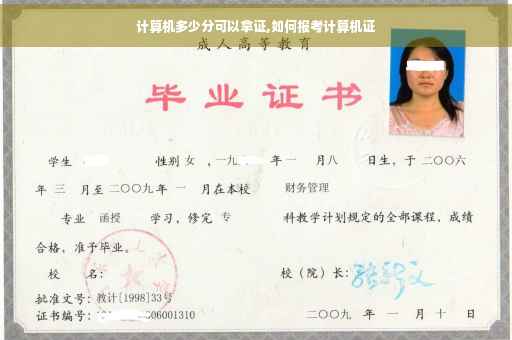 计算机多少分可以拿证,如何报考计算机证
成人高等教育
毕业证书
学生 性别 女 ,一九 年 一 月八 日生,于 二〇〇六
年 三 月至 二〇〇九 年 一 月在本校 财务管理
专业 函授 学习,修完 专 科教学计划规定的全部课程,成绩
合格,准予毕业。
校 名: 校(院)长:
批准文号:教计[1998]33号
证书编号: 06001310 二〇〇九 年 一 月 十 日